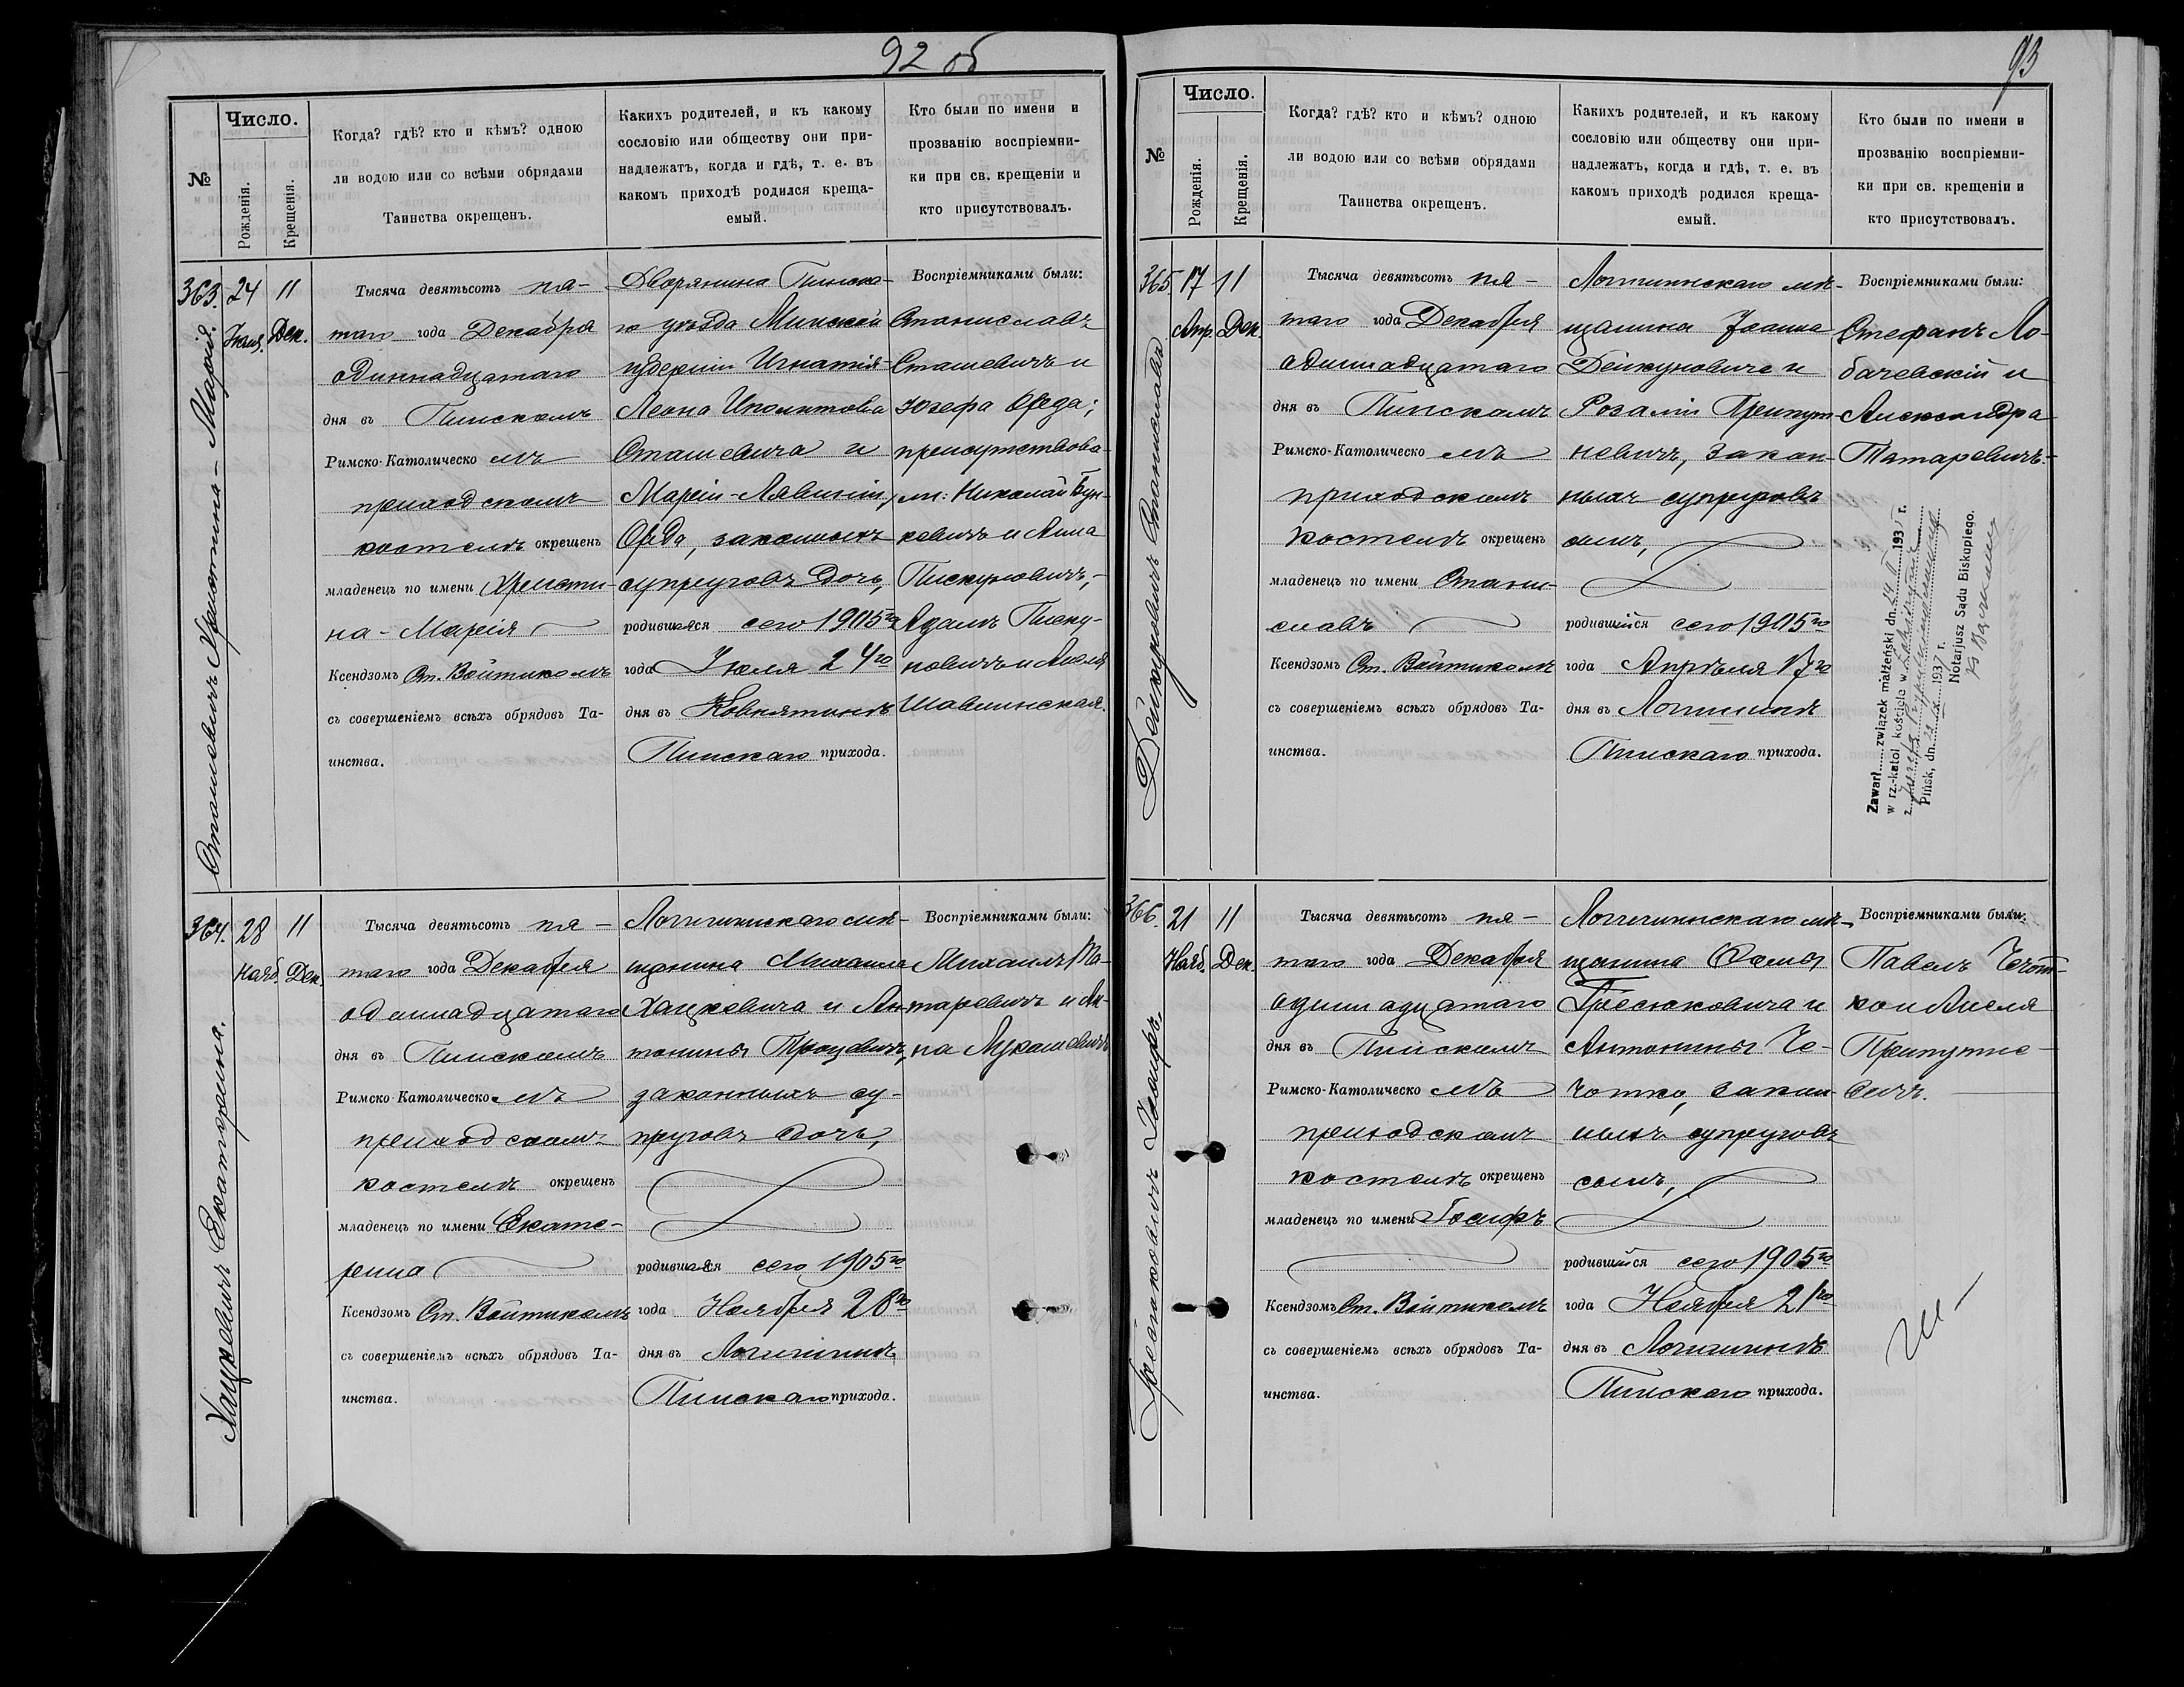 92 об
Число.
№
Рожденія.
Крещенія.
Когда? гдѣ? кто и кѣмъ? одною
ли водою или со всѣми обрядами
Таинства окрещенъ.
Каких родителей, и къ какому
сословію или обществу они при-
надлежатъ, когда и гдѣ, т. е. въ
какомъ приходѣ родился креща-
емый.
Кто были по имени и
прозванію воспріемни-
ки при св. крещеніи и
кто присутствовалъ.
363.
24
Іюля.
11
Дек.
Сташевичъ Христина-Марія.
Тысяча девятьсотъ пя-
таго года Декабря
одиннадцатаго
дня въ Пинскомъ
Римско-Католическомъ
приходскомъ
костелѣ окрещенъ
младенецъ по имени Христи-
на-Марія
Ксендзомъ Ст. Войтикомъ
съ совершеніемъ всѣхъ обрядовъ Та-
инства.
Дворянина Пинска-
го уѣзда Минской
губерніи Игнатія-
Леона Иполитова
Сташевича и
Маріи-Лявиніи,
Орда, законныхъ
супруговъ дочь,
родившаяся сего 1905го
года Іюля 24го
дня въ Ковнятинѣ
Пинскаго прихода.
Воспріемниками были:
Станиславъ
Сташевичъ и
Юзефа Орда;
присутствова-
ли: Николай Бун-
кевичъ и Анна
Пискуновичъ,-
Адамъ Писку-
новичъ и Анеля
Шавшинская.
364.
28
Нояб.
11
Дек.
Хацкевичъ Екатерина.
Тысяча девятьсотъ пя-
таго года Декабря
одиннадцатаго
дня въ Пинскомъ
Римско-Католическомъ
приходскомъ
костелѣ окрещенъ
младенецъ по имени Екате-
рина
Ксендзомъ Ст. Войтикомъ
съ совершеніемъ всѣхъ обрядовъ Та-
инства.
Логишинскаго мѣ-
щанина Михаила
Хацкевича и Ан-
тонины Троцевичъ,
законныхъ су-
пруговъ дочь,
родившаяся сего 1905го
года Ноября 28го
дня въ Логишинѣ
Пинскаго прихода.
Воспріемниками были:
Михаилъ Та-
таревичъ и Ан-
на Лукашевичъ
93
Число.
№
Рожденія.
Крещенія.
Когда? гдѣ? кто и кѣмъ? одною
ли водою или со всѣми обрядами
Таинства окрещенъ.
Каких родителей, и къ какому
сословію или обществу они при-
надлежатъ, когда и гдѣ, т. е. въ
какомъ приходѣ родился креща-
емый.
Кто были по имени и
прозванію воспріемни-
ки при св. крещеніи и
кто присутствовалъ.
365
17
Апр.
11
Дек.
Дейкуновичъ Станиславъ
Тысяча девятьсотъ пя-
таго года Декабря
одиннадцатаго
дня въ Пинскомъ
Римско-Католическомъ
приходскомъ
костелѣ окрещенъ
младенецъ по имени Стани-
славъ
Ксендзомъ Ст. Войтикомъ
съ совершеніемъ всѣхъ обрядовъ Та-
инства.
Логишинскаго мѣ-
щанина Іоанна
Дейкуновича и
Розаліи Припут-
невичъ, закон-
ныхъ супруговъ
сынъ,
родившійся сего 1905го
года Апрѣля 17го
дня въ Логишинѣ
Пинскаго прихода.
Воспріемниками были:
Стефанъ Ло-
бачевскій и
Александра
Татаревичъ.-
Zawarł związek małżeński dn. 14 II 193 r.
w rz.-katol kościele w
z Józefą
Pińsk, dn. 1937 r.
Notarjusz Sądu Biskupiego.
366.
21
Нояб.
11
Дек.
Гресюковичъ Іосифъ.
Тысяча девятьсотъ пя-
таго года Декабря
одиннадцатаго
дня въ Пинскомъ
Римско-Католическомъ
приходскомъ
костелѣ окрещенъ
младенецъ по имени Іосифъ
Ксендзомъ Ст. Войтикомъ
съ совершеніемъ всѣхъ обрядовъ Та-
инства.
Логишинскаго мѣ-
щанина Ѳомы
Гресюковича и
Антонины Че-
чотко, закон-
ныхъ супруговъ
сынъ,
родившійся сего 1905го
года Ноября 21го
дня въ Логишинѣ
Пинскаго прихода.
Воспріемниками были:
Павелъ Чечот-
ко и Анеля
Припутне-
вичъ.